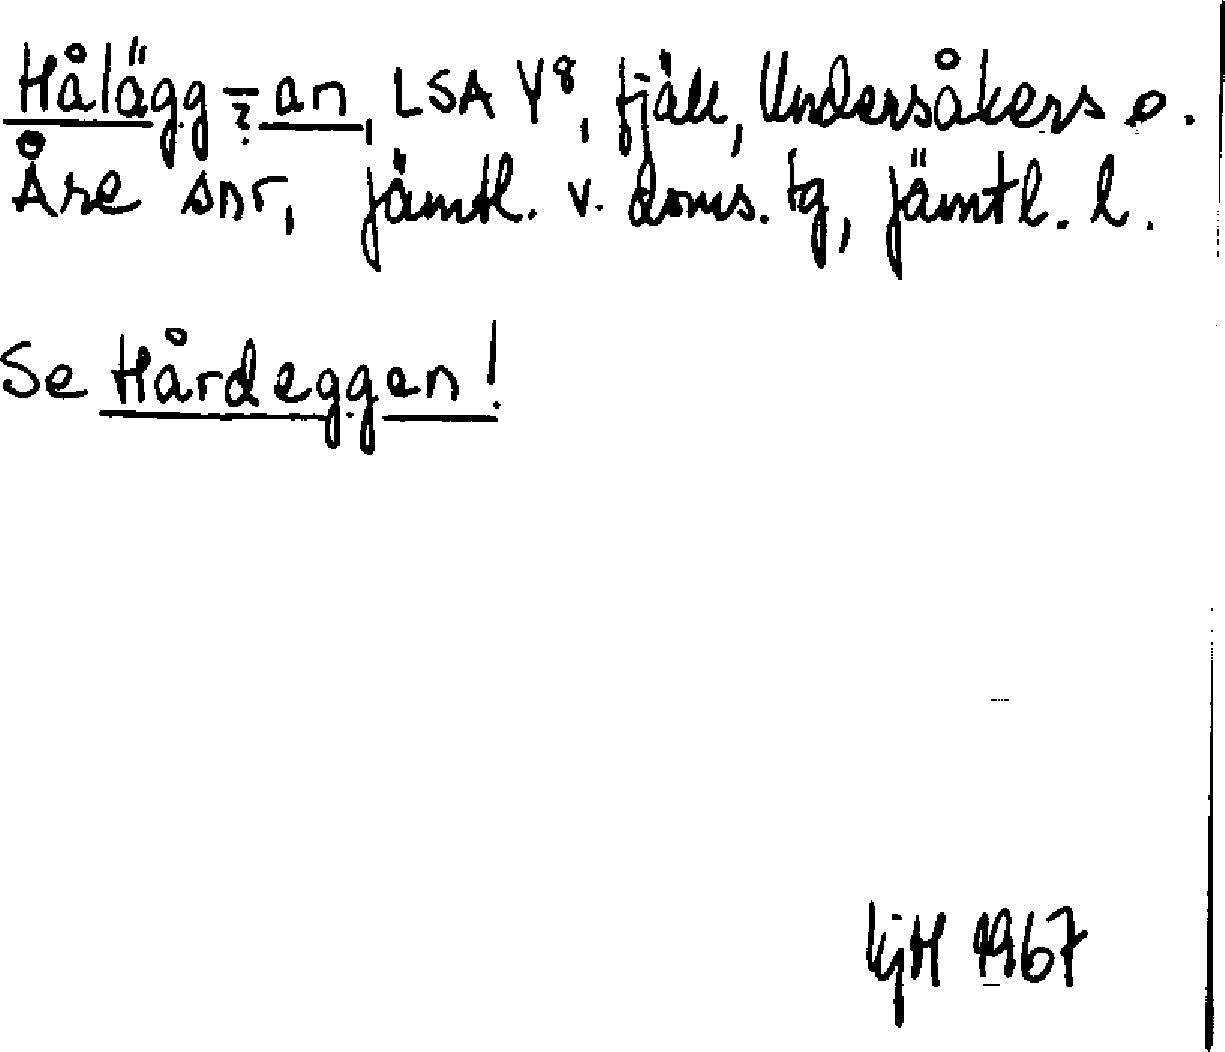 Hålägg-?an, LSA Y8, fjäll, Undersåkers o.
Åre snr, Jämtl. v. doms. tg, Jämtl. l.
Se Hårdeggen!
KjH 1967